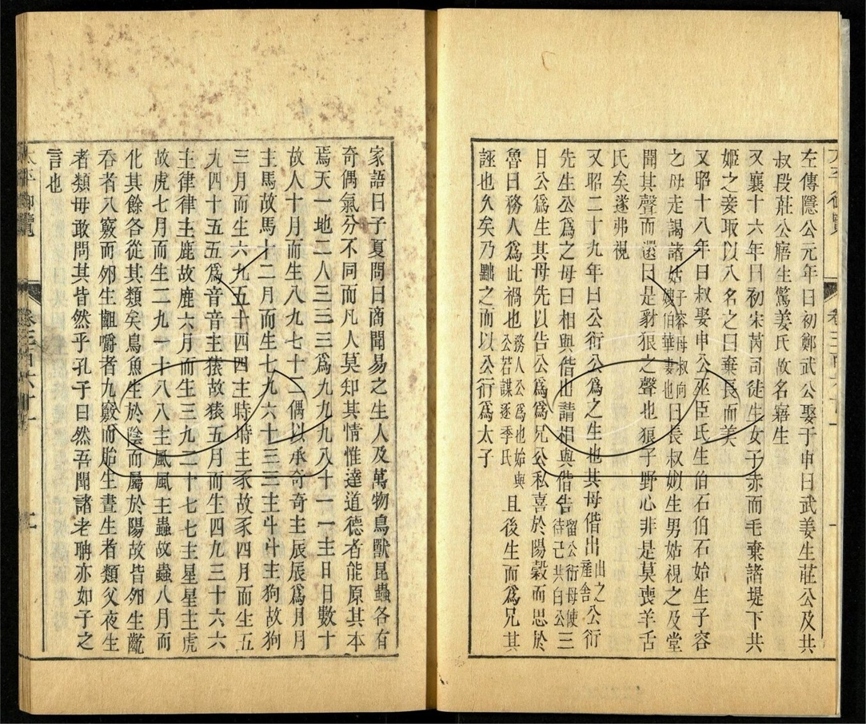 左傳隱公元年曰初鄭武公娶于申曰武姜生莊公及共
叔段莊公寤生驚姜氏故名寤生
又襄十六年曰初宋芮司徒生女子赤而毛棄諸堤下共
姬之妾取以入名之曰棄長而美
又昭十八年曰叔娶申公巫臣氏生伯石伯石始生子容
之母走謁諸姑子容母叔向嫂伯華妻也曰長叔姒生男姑視之及堂
聞其聲而還曰是豺狼之聲也狼子野心非是莫喪羊舌
氏矣遂弗視
又昭二十九年曰公衍公為之生也其母偕出出之產舍公衍
先生公為之母曰相與偕出請相與偕告留公衍母使待己共白公三
日公為生其母先以告公公為為兄公私喜於陽穀而思於
魯曰務人為此禍也務人公為也始與公若謀逐季氏且後生而為兄其
誣也久矣乃黜之而以公衍為太子
太平御覽
卷三百六十一
家語曰子夏問曰商聞易之生人及萬物鳥獸昆蟲各有
奇偶氣分不同而凡人莫知其情惟達道德者能原其本
焉天一地二人三三三為九九九八十一一主日日數十
故人十月而生八九七十二偶以承奇奇主辰辰為月月
主馬故馬十二月而生七九六十三三主斗斗主狗故狗
三月而生六九五十四四主時時主豕故豕四月而生五
九四十五五為音音主猿故猿五月而生四九三十六六
主律律主鹿故鹿六月而生三九二十七七主星星主虎
故虎七月而生二九一十八八主風風主蟲故蟲八月而
化其餘各從其類矣鳥魚生於陰而屬於陽故皆卵生齕
吞者八竅而卵生齟嚼者九竅而胎生晝生者類父夜生
者類母敢問其皆然乎孔子曰然吾聞諸老聃亦如子之
言也